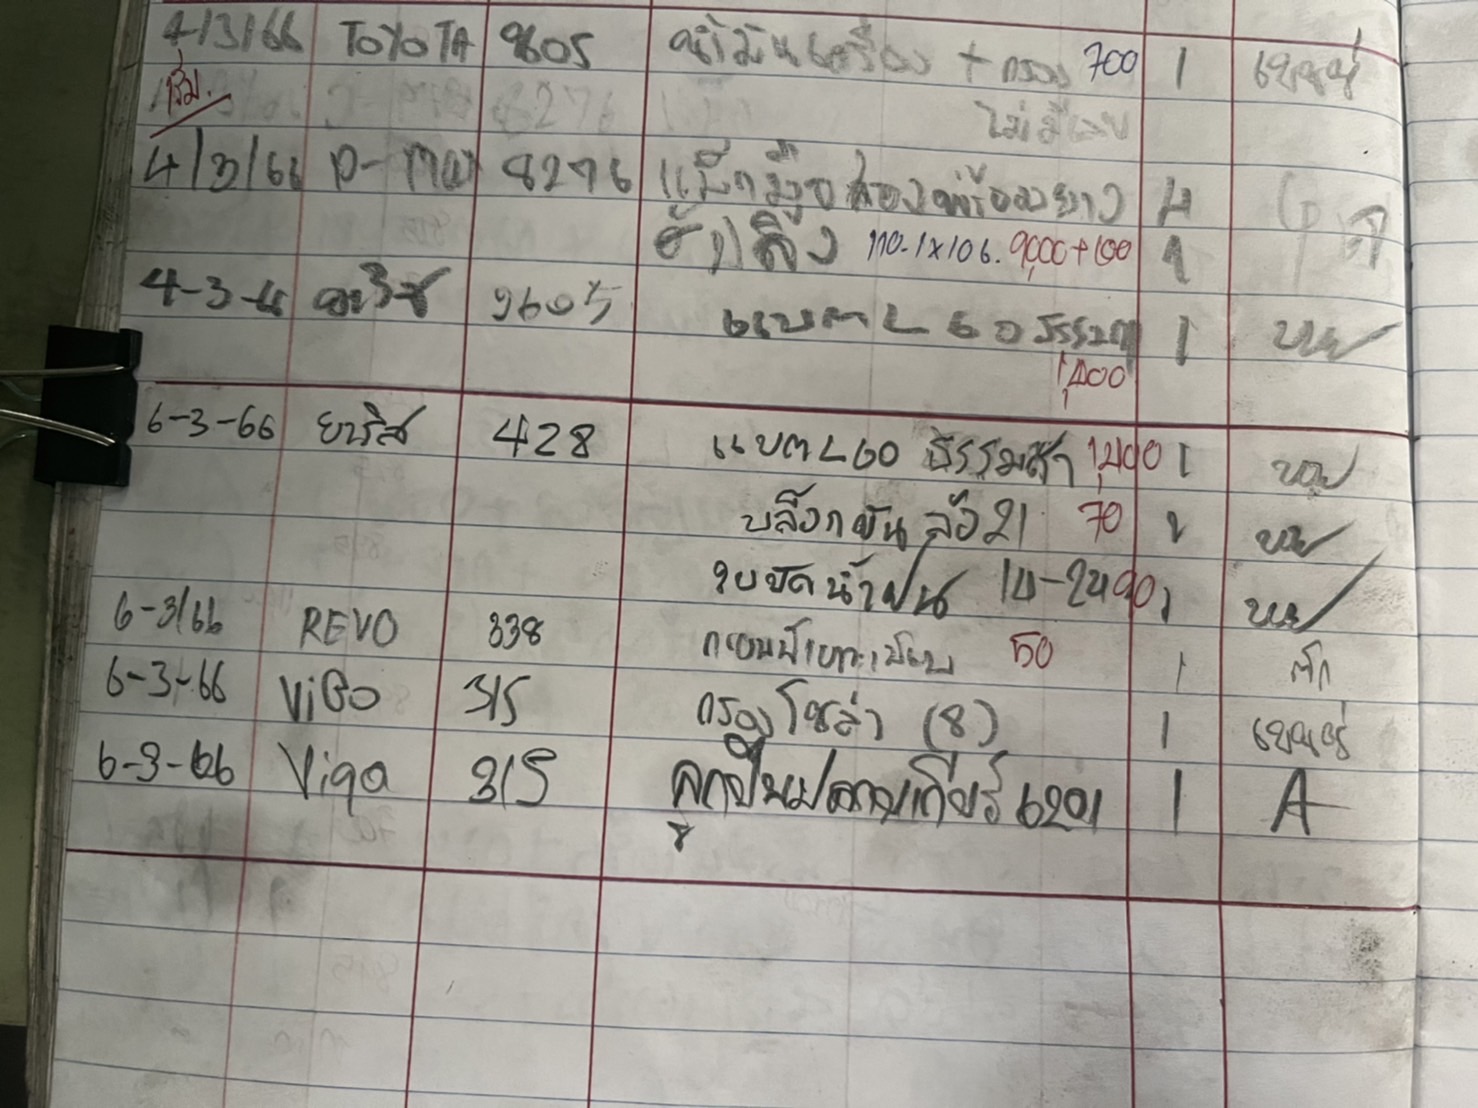 4/3/66 TOYOTA 9605 น้ำมันเครื่อง + กรอง 700 1 เชษฐ์
ไม่มีเลข
4/3/66 D-max 8276 แม็กมือสองพร้อมยาง 4
110-1x106. 9,000+100 1
4-3-4 9605 แบต L 60 ธรรมดา 1
1,400
6-3-66 ยาริส 428 แบต L60 ธรรมดา 1,400 1
บล็อกขันล้อ 21 70 1
ใบปัดน้ำฝน 14-24 90 1
6-3/66 REVO 338 50 1
6-3-66 ViGo 315 กรองโซล่า (8) 1
6-3-66 Vigo 315 ลูกปืนปลายเกียร์ 6201 1 A